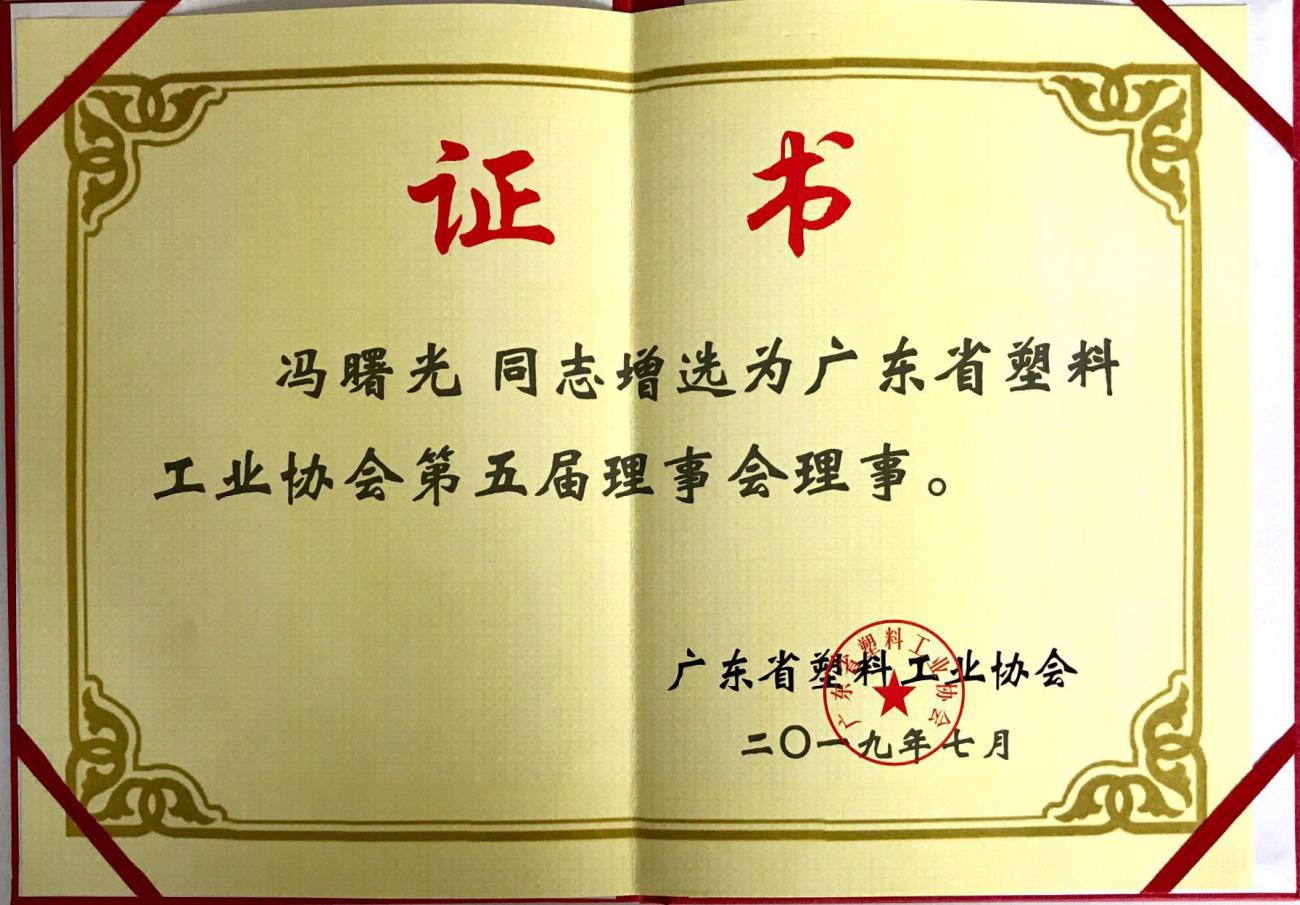 证 书
冯曙光 同志增选为广东省塑料
工业协会第五届理事会理事。
广东省塑料工业协会
二〇一九年七月
广东省塑料工业协会